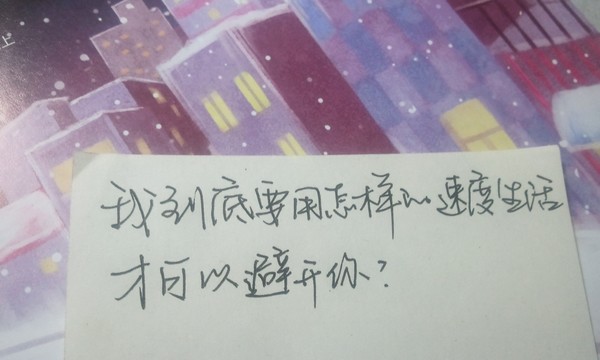 上
我到底要用怎样的速度生活
才可以避开你?